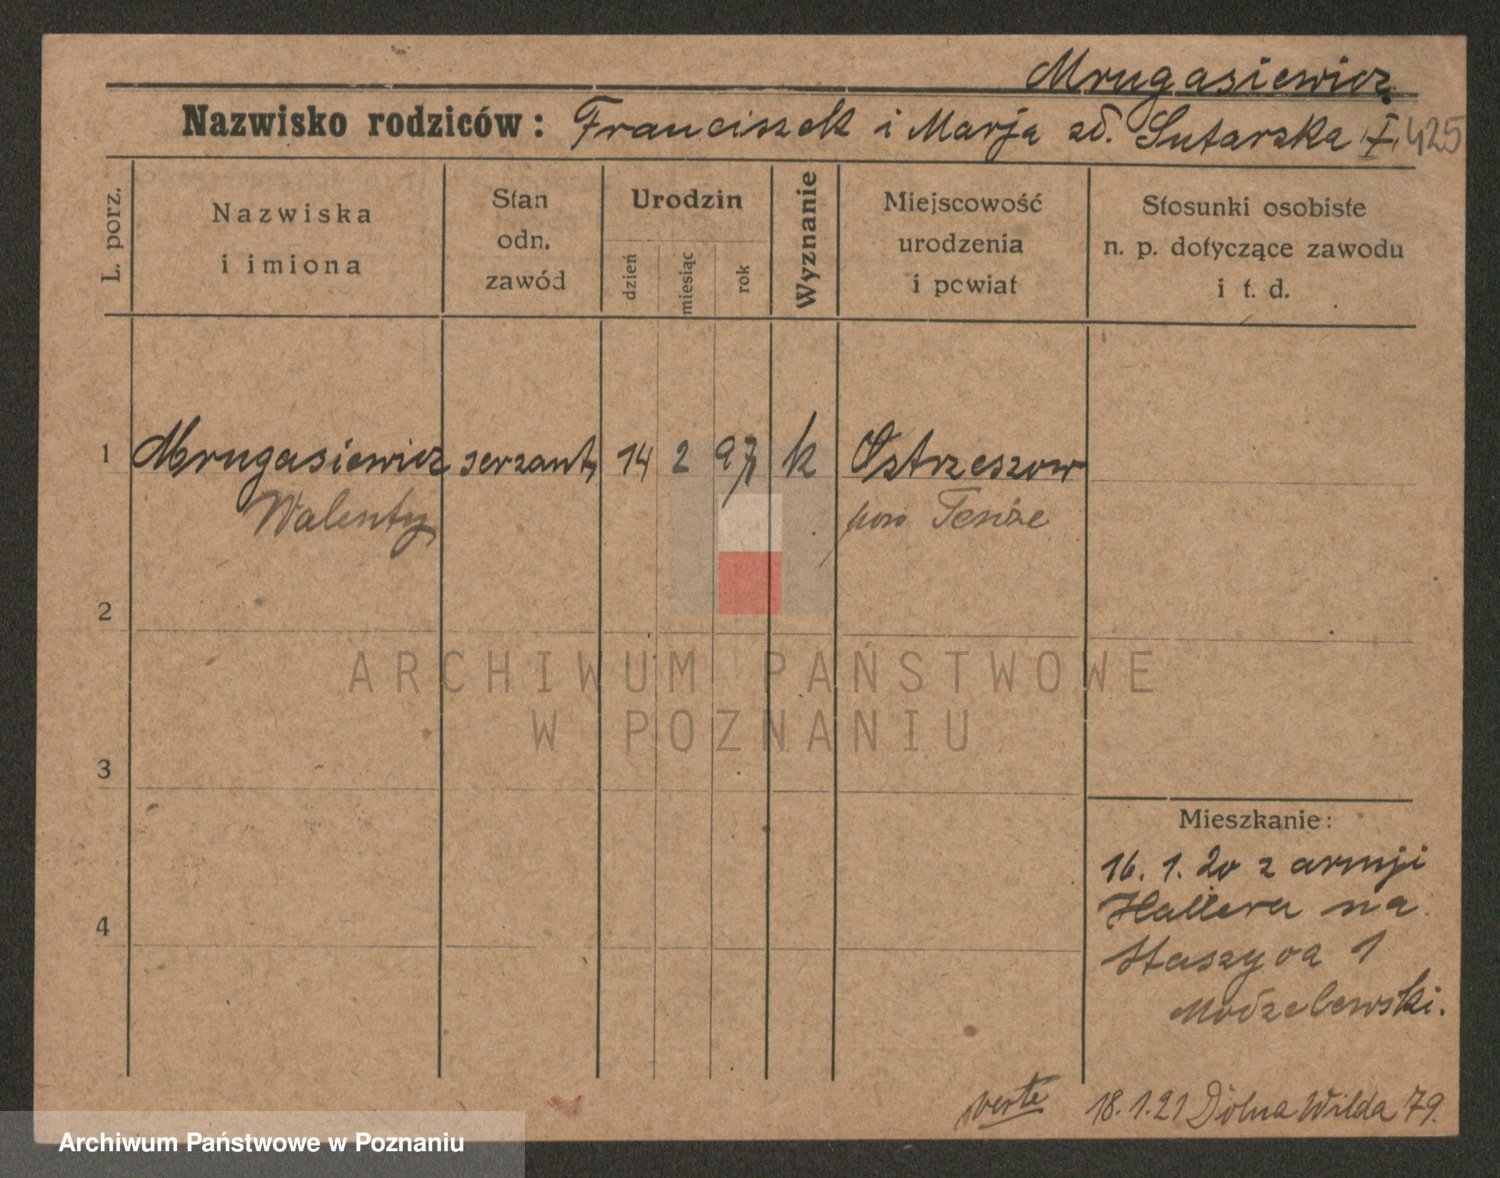 Mrugasiewicz
Nazwisko rodziców: Franciszek i Marja zd. Sutarska I, 425
L. porz.
Nazwiska
i imiona
Stan
odn.
zawód
Urodzin
dzień
miesiąc
rok
Wyznanie
Miejscowość
urodzenia
i powiat
Stosunki osobiste
n. p. dotyczące zawodu
i t. d.
1 Mrugasiewicz serzant 14 2 97 k Ostrzeszow
Walenty pow Tenże
2
ARCHIWUM PAŃSTWOWE
W POZNANIU
3
Mieszkanie:
16. 1. 20 z armji
Hallera na
4
Staszyca 1
Modzelewski.
verte 18. 1. 21 Dolna Wilda 79.
Archiwum Państwowe w Poznaniu